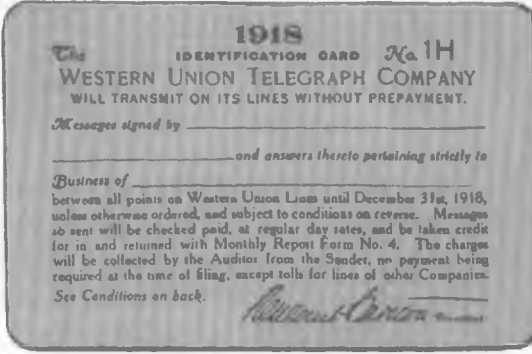 1918
The IDENTIFICATION CARD No. 1H
WESTERN UNION TELEGRAPH COMPANY
WILL TRANSMIT ON ITS LINES WITHOUT PREPAYMENT.
Messages signed by
and answers thereto pertaining strictly to
Business of
between all points on Western Union Lines until December 31st, 1918,
unless otherwise ordered, and subject to conditions on reverse. Messages
so sent will be checked paid, at regular day rates, and be taken credit
for in and returned with Monthly Report Form No. 4. The charges
will be collected by the Auditor from the Sender, no payment being
required at the time of filing, except tolls for lines of other Companies.
See Conditions on back.